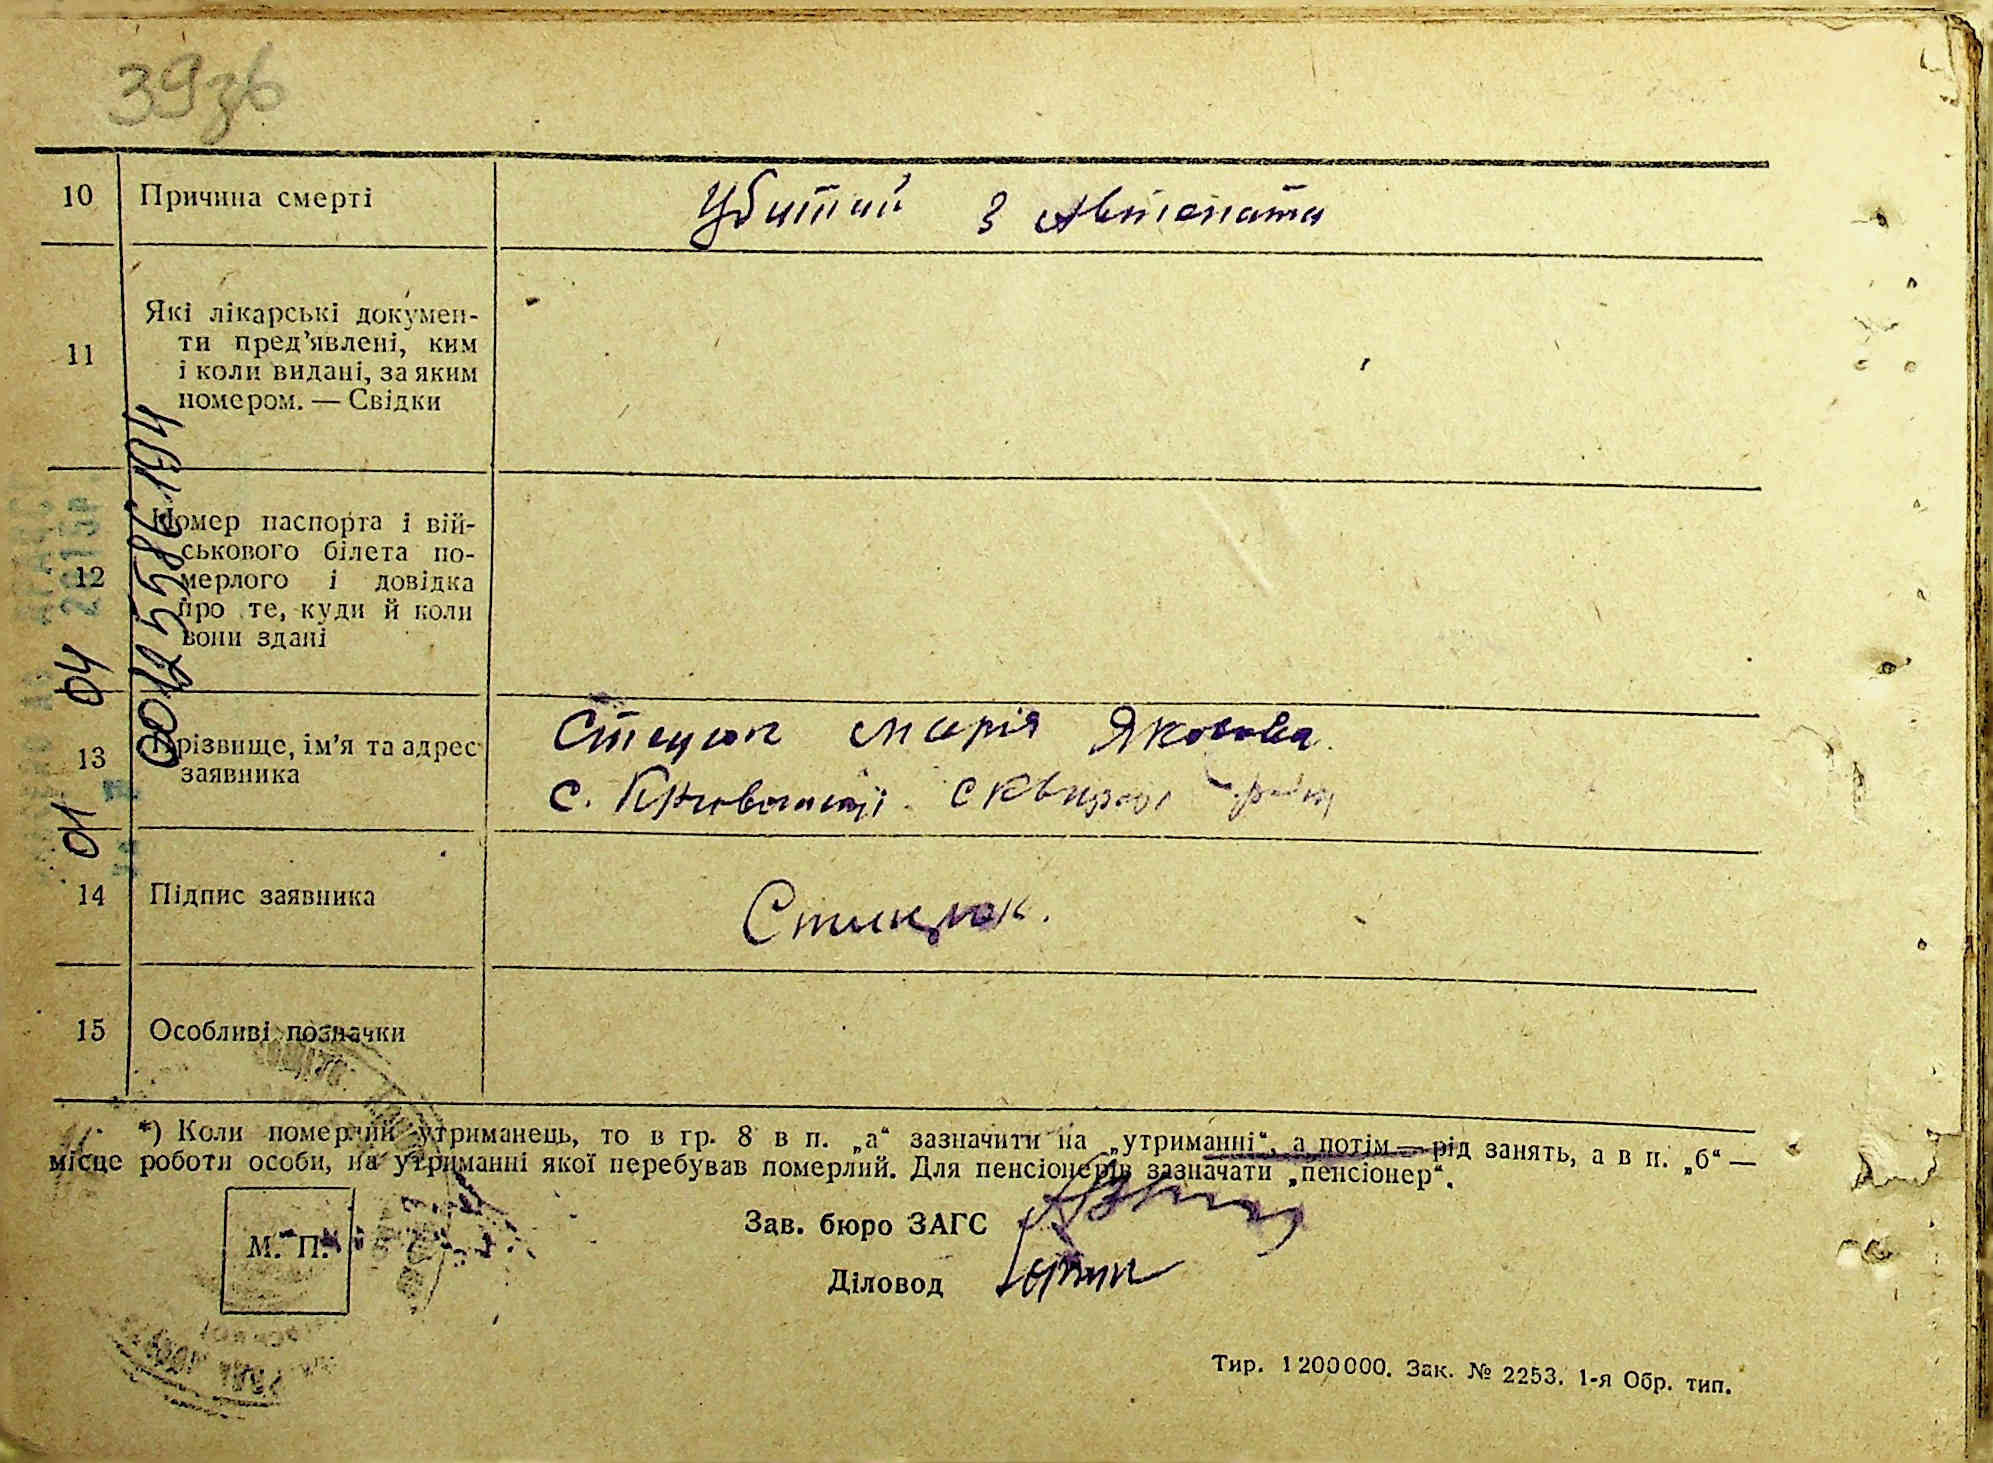 39зв
10 Причина смерті Убитий з Автомата
11 Які лікарські докумен-
ти пред’явлені, ким
і коли видані, за яким
номером. — Свідки
12 Номер паспорта і вій-
ськового білета по-
мерлого і довідка
про те, куди й коли
вони здані
13 Прізвище, ім’я та адрес
заявника
Стецюк Марія Яковова
с.
14 Підпис заявника Стецюк.
15 Особливі позначки
*) Коли померлий утриманець, то в гр. 8 в п. „а“ зазначити на „утриманні“, а потім — рід занять, а в п. „б“ —
місце роботи особи, на утриманні якої перебував померлий. Для пенсіонерів зазначати „пенсіонер“.
Зав. бюро ЗАГС
М. П.
Діловод
Тир. 1200000. Зак. № 2253. 1-я Обр. тип.
01 04